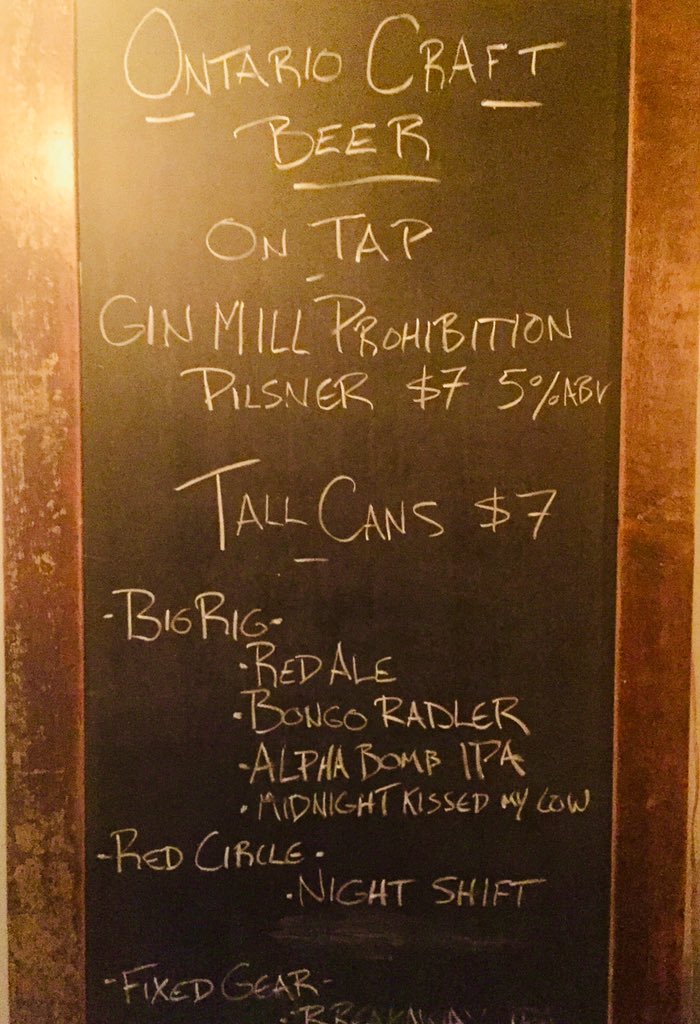 ONTARIO CRAFT
BEER
ON TAP
GIN MILL PROHIBITION
PILSNER $7 5% ABV
TALL CANS $7
-BIG RIG-
·RED ALE
·BONGO RADLER
·ALPHA BOMB IPA
·MIDNIGHT KISSED MY COW
-RED CIRCLE·
·NIGHT SHIFT
-FIXED GEAR-
·BREAKAWAY